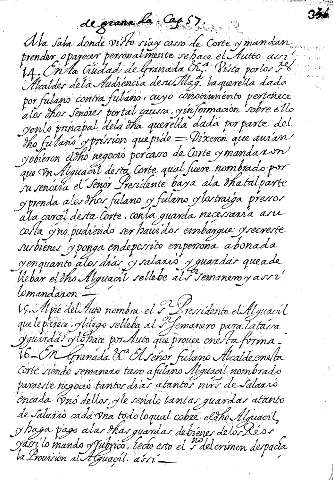 de granada. Cap 57.
A la sala donde visto si ay caso de Corte y mandan
prender, o parecer personalmente se hace el Auto assi
14. En la ciudad de Granada &ª. Vista por los Sres
Alcaldes de la Audiencia de su Mag. la querella dada
por fulano contra fulano, cuyo conocimiento pertenece
a los dhos Señores por tal causa, y informacion sobre ello
y en lo principal de la dha querella dada por parte del
dho fulano y prission que pide = Dixeron que avian
y obieron el dho negocio por caso de Corte y mandaron
que Un Alguacil desta Corte qual fuere nombrado por
su señoria el Señor Presidente baya a la dha tal parte
y prenda a los dhos fulano y fulano y los traiga presos
a la carcel desta Corte. con la guarda necessaria a su
costa y no pudiendo ser havidos embargue y secreste
sus bienes y ponga en deposito en persona abonada
y en quanto a los dias y salario y guardas que a de
llebar el dho Alguacil se llebe al Sr Semanero y assi
lo mandaron
15. Al pie del Auto nombra el Sr Presidente el Alguacil
que le parece, y luego se lleba al Sr Semanero para la tasa
y guardas y lo hace por Auto que provee en esta forma.
16. En Granada &ª. El señor fulano Alcalde en esta
Corte siendo semanero taso a fulano Alguacil nombrado
para este negocio tantos dias a tantos mrs de Salario
en cada Uno dellos, y le señalo tantas guardas a tanto
de Salario cada Una todo lo qual cobre el dho Alguacil
y haga pago a las dhas guardas de bienes de los Reos
y assi lo mando y rubrico. hecho esto el sno del crimen despacha
la Provision al Alguacil. assi